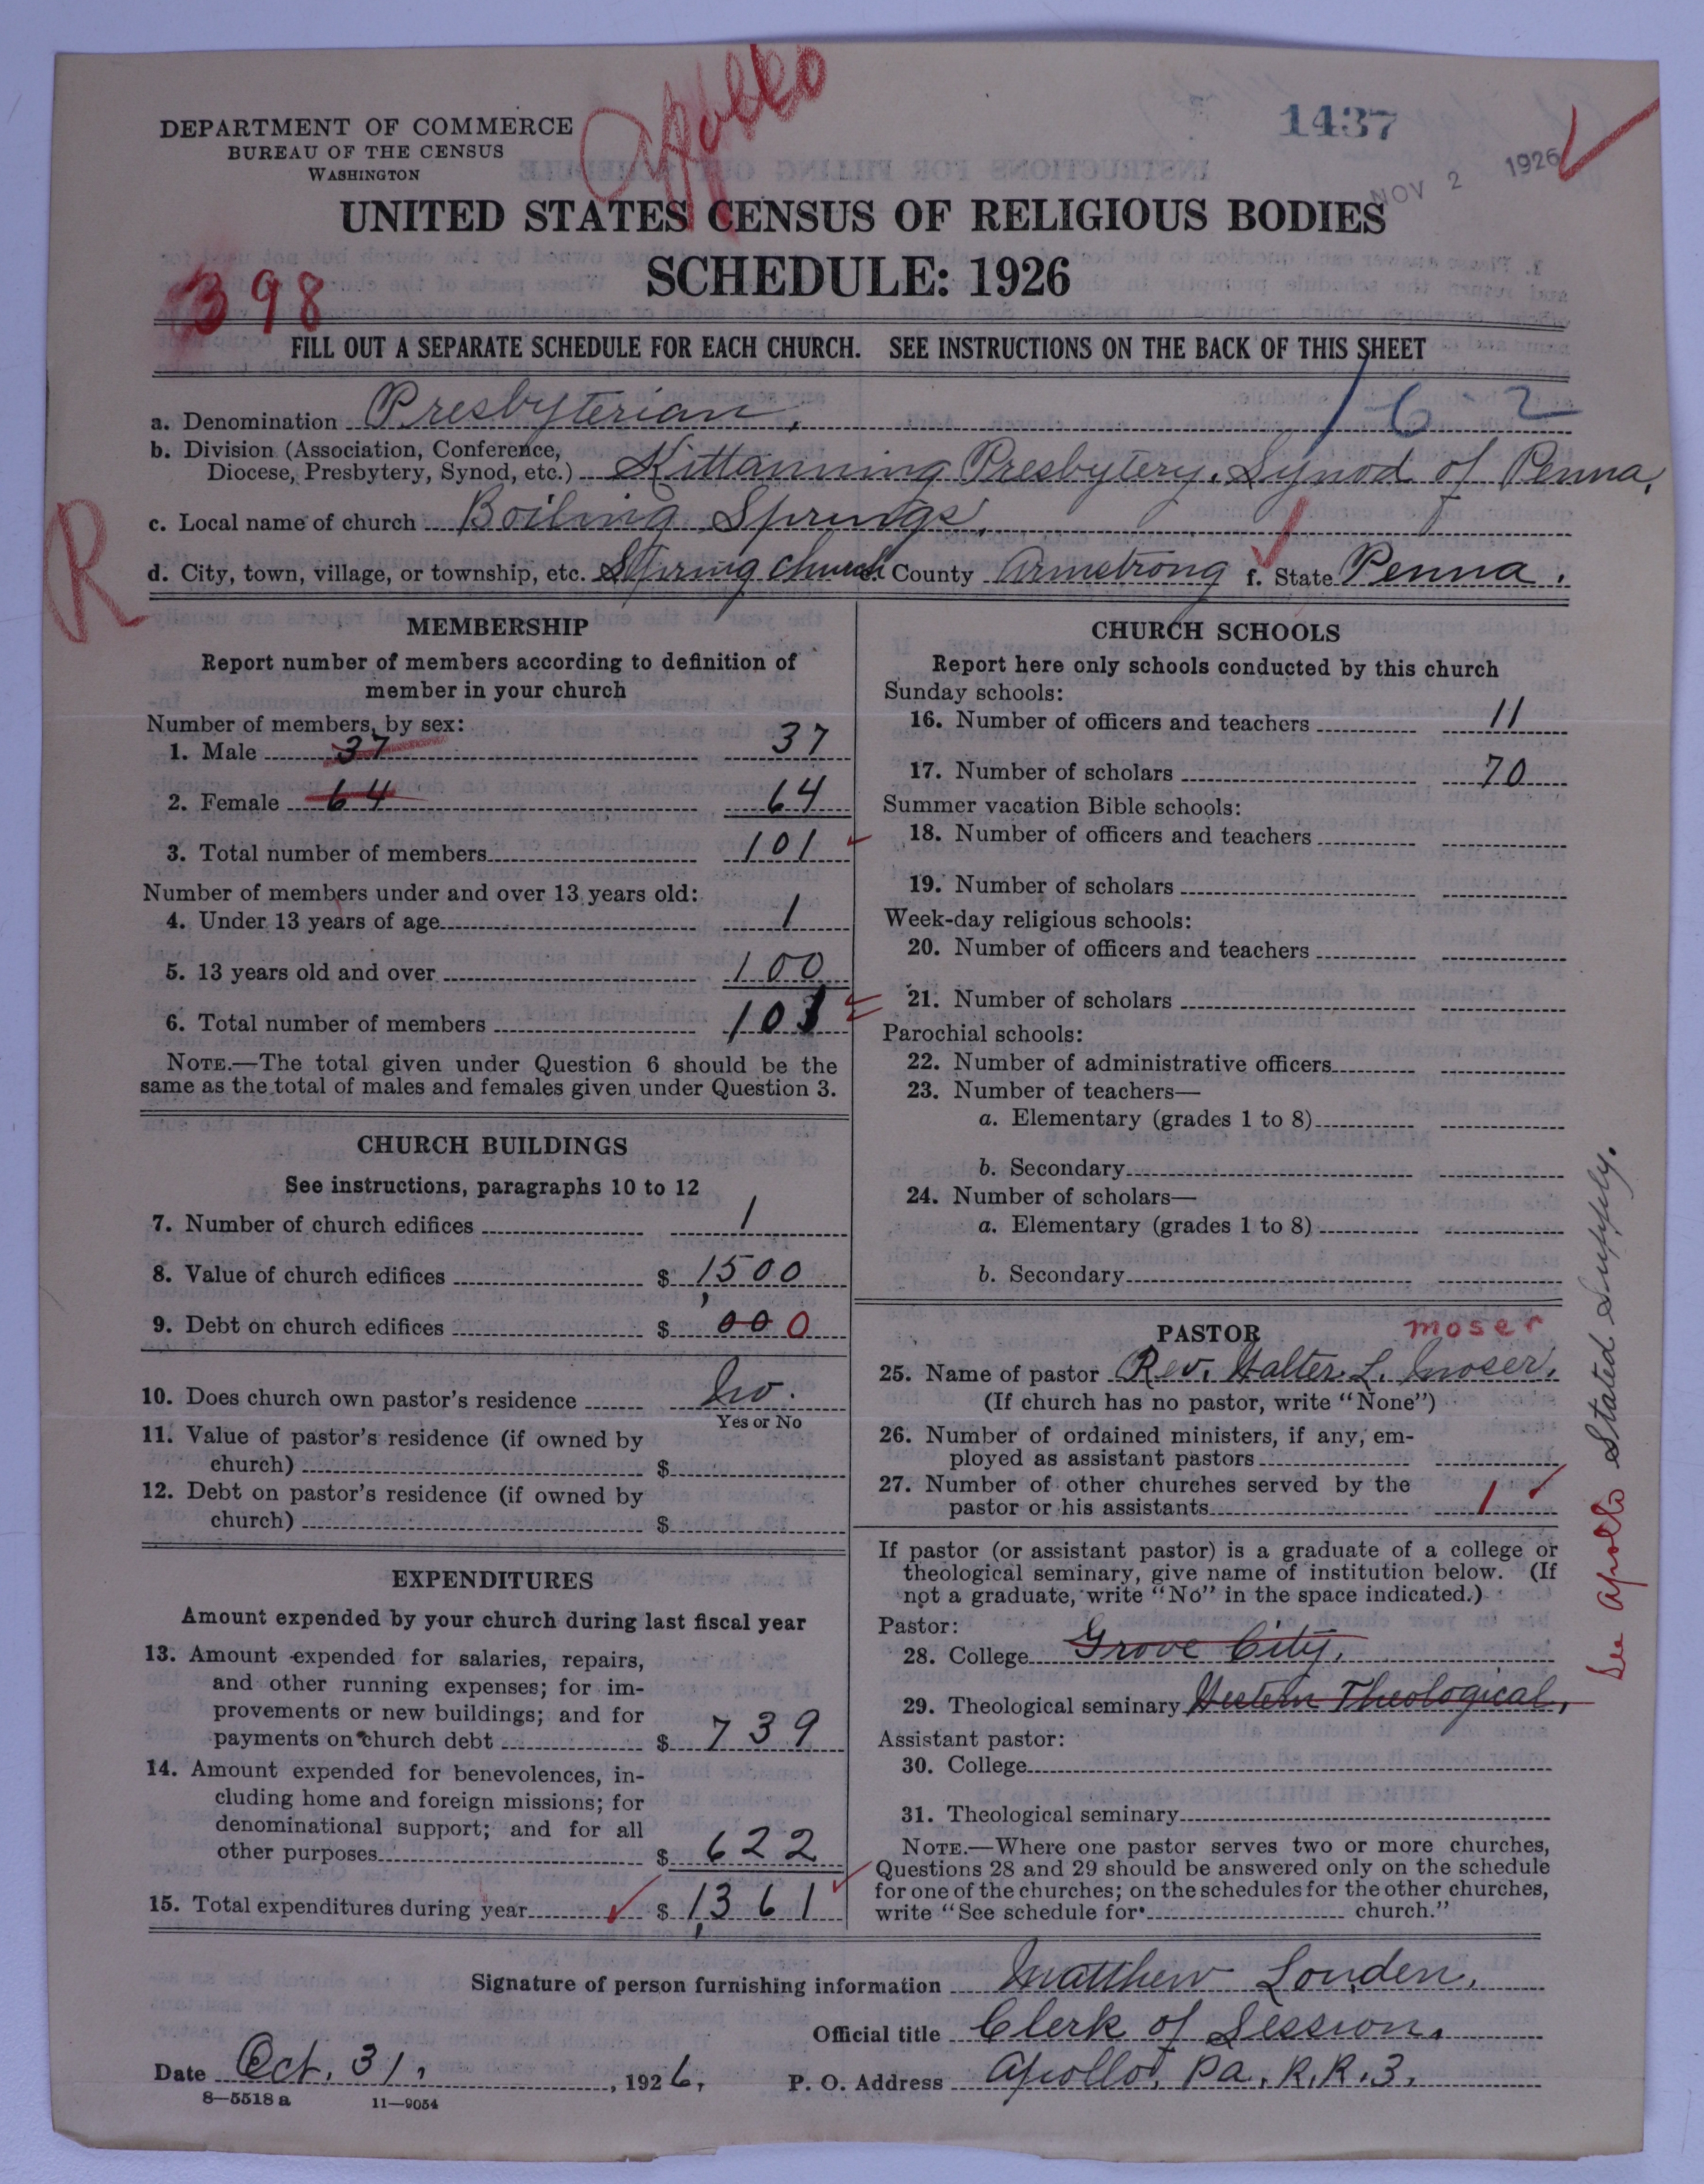 Apollo
1437
DEPARTMENT OF COMMERCE
BUREAU OF THE CENSUS
WASHINGTON
NOV 2 1926
UNITED STATES CENSUS OF RELIGIOUS BODIES
SCHEDULE: 1926
398
FILL OUT A SEPARATE SCHEDULE FOR EACH CHURCH. SEE INSTRUCTIONS ON THE BACK OF THIS SHEET
1-6 2
a. Denomination Presbyterian.
b. Division (Association, Conference,
Diocese, Presbytery, Synod, etc.) Kittanning Presbytery. Synod of Penna.
c. Local name of church Boiling Springs.
d. City, town, village, or township, etc. Spring Church e. County Armstrong f. State Penna.
R
MEMBERSHIP
Report number of members according to definition of
member in your church
Number of members, by sex:
1. Male 37 37
2. Female 64 64
3. Total number of members 101
Number of members under and over 13 years old:
4. Under 13 years of age 1
5. 13 years old and over 100
6. Total number of members 101
NOTE.—The total given under Question 6 should be the
same as the total of males and females given under Question 3.
CHURCH BUILDINGS
See instructions, paragraphs 10 to 12
7. Number of church edifices 1
8. Value of church edifices $ 1,500
9. Debt on church edifices $ 00 0
10. Does church own pastor's residence No.
Yes or No
11. Value of pastor's residence (if owned by
church) $
12. Debt on pastor's residence (if owned by
church) $
EXPENDITURES
Amount expended by your church during last fiscal year
13. Amount expended for salaries, repairs,
and other running expenses; for im-
provements or new buildings; and for
payments on church debt $ 739
14. Amount expended for benevolences, in-
cluding home and foreign missions; for
denominational support; and for all
other purposes $ 622
15. Total expenditures during year $ 1,361
CHURCH SCHOOLS
Report here only schools conducted by this church
Sunday schools:
16. Number of officers and teachers 11
17. Number of scholars 70
Summer vacation Bible schools:
18. Number of officers and teachers
19. Number of scholars
Week-day religious schools:
20. Number of officers and teachers
21. Number of scholars
Parochial schools:
22. Number of administrative officers
23. Number of teachers—
a. Elementary (grades 1 to 8)
b. Secondary
24. Number of scholars—
a. Elementary (grades 1 to 8)
b. Secondary
PASTOR
moser
25. Name of pastor Rev. Walter L. Moser.
(If church has no pastor, write "None")
26. Number of ordained ministers, if any, em-
ployed as assistant pastors
27. Number of other churches served by the
pastor or his assistants 1
If pastor (or assistant pastor) is a graduate of a college or
theological seminary, give name of institution below. (If
not a graduate, write "No" in the space indicated.)
Pastor:
28. College Grove City.
29. Theological seminary Western Theological,
Assistant pastor:
30. College
31. Theological seminary
NOTE.—Where one pastor serves two or more churches,
Questions 28 and 29 should be answered only on the schedule
for one of the churches; on the schedules for the other churches,
write "See schedule for church."
See Apollo Stated Supply.
Signature of person furnishing information Matthew Louden.
Official title Clerk of Session.
Date Oct. 31, 1926, P. O. Address Apollo, Pa. R.R.3.
8—5518 a 11—9054